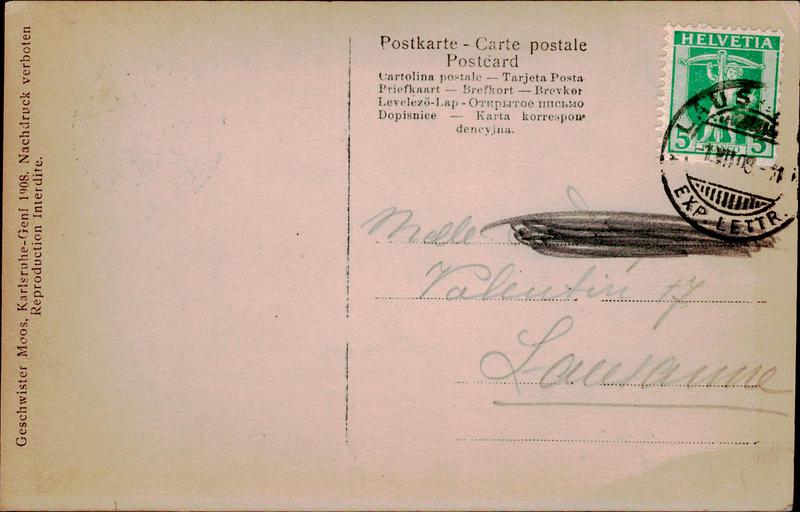 Geschwister Moos, Karlsruhe-Genf 1908. Nachdruck verboten
Reproduction Interdite.
Postkarte - Carte postale
Postcard
Cartolina postale — Tarjeta Posta
Briefkaart — Brefkort — Brevkor
Levelező-Lap - Открытое письмо
Dopisnice — Karta korrespon
dencyjna.
HELVETIA
5 5
LAUSA
EXP. LETTR.
Melle
Valentin 17
Lausanne